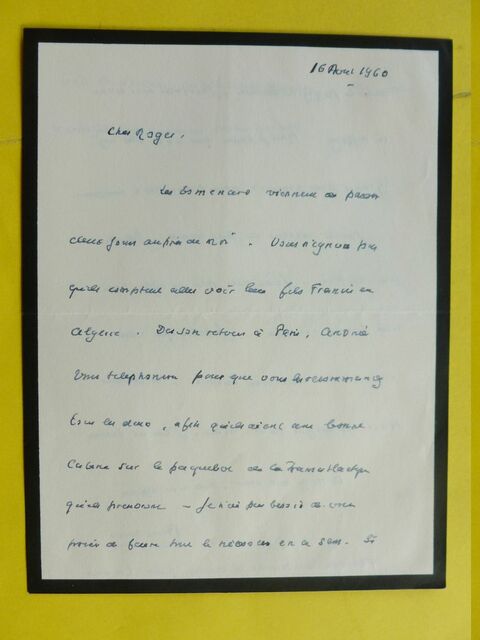 16 Avril 1960
Cher Roger,
Les viennent de passer
deux jours auprès de moi. Vous n'ignorez pas
qu'ils comptent aller voir leur fils Francis en
Algérie. Dès son retour à Paris, André
vous téléphonera pour que vous les recommandiez
tous les deux, afin qu'ils aient une bonne
cabine sur le paquebot de la Transatlantique
qu'ils prendront - Je n'ai pas besoin de vous
prier de faire tout le nécessaire en ce sens. Si